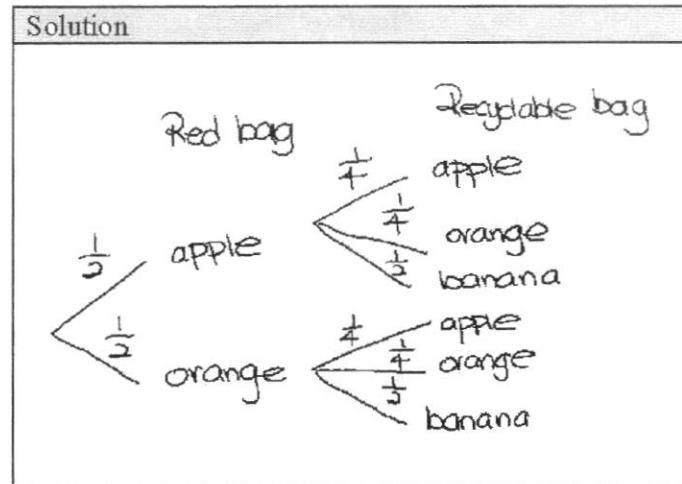 Solution
Red bag
Recyclable bag
1/4 apple
1/2 apple
1/4 orange
1/2 banana
1/4 apple
1/2 orange
1/4 orange
1/2 banana